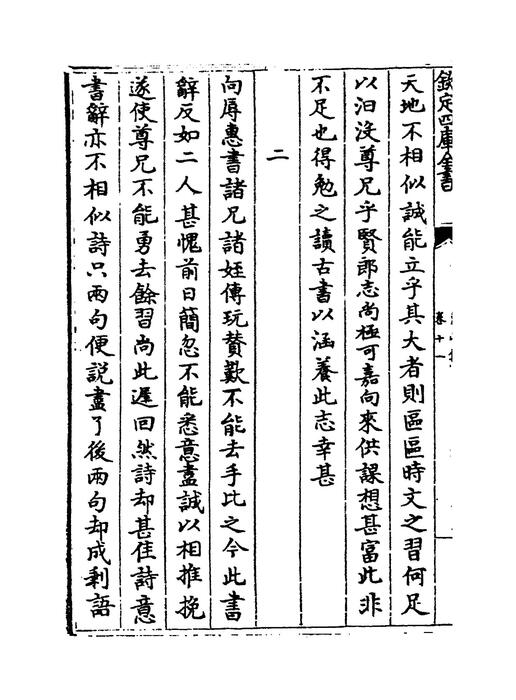 欽定四庫全書
卷十一
天地不相似誠能立乎其大者則區區時文之習何足
以汩没尊兄乎賢郎志尚極可嘉向來供課想甚富此非
不足也得勉之讀古書以涵養此志幸甚
二
向辱惠書諸兄諸姪傳玩賛歎不能去手比之今此書
辭反如二人甚愧前日簡忽不能悉意盡誠以相推挽
遂使尊兄不能勇去餘習尚此遲回然詩却甚佳詩意
書辭亦不相似詩只兩句便説盡了後兩句却成剩語